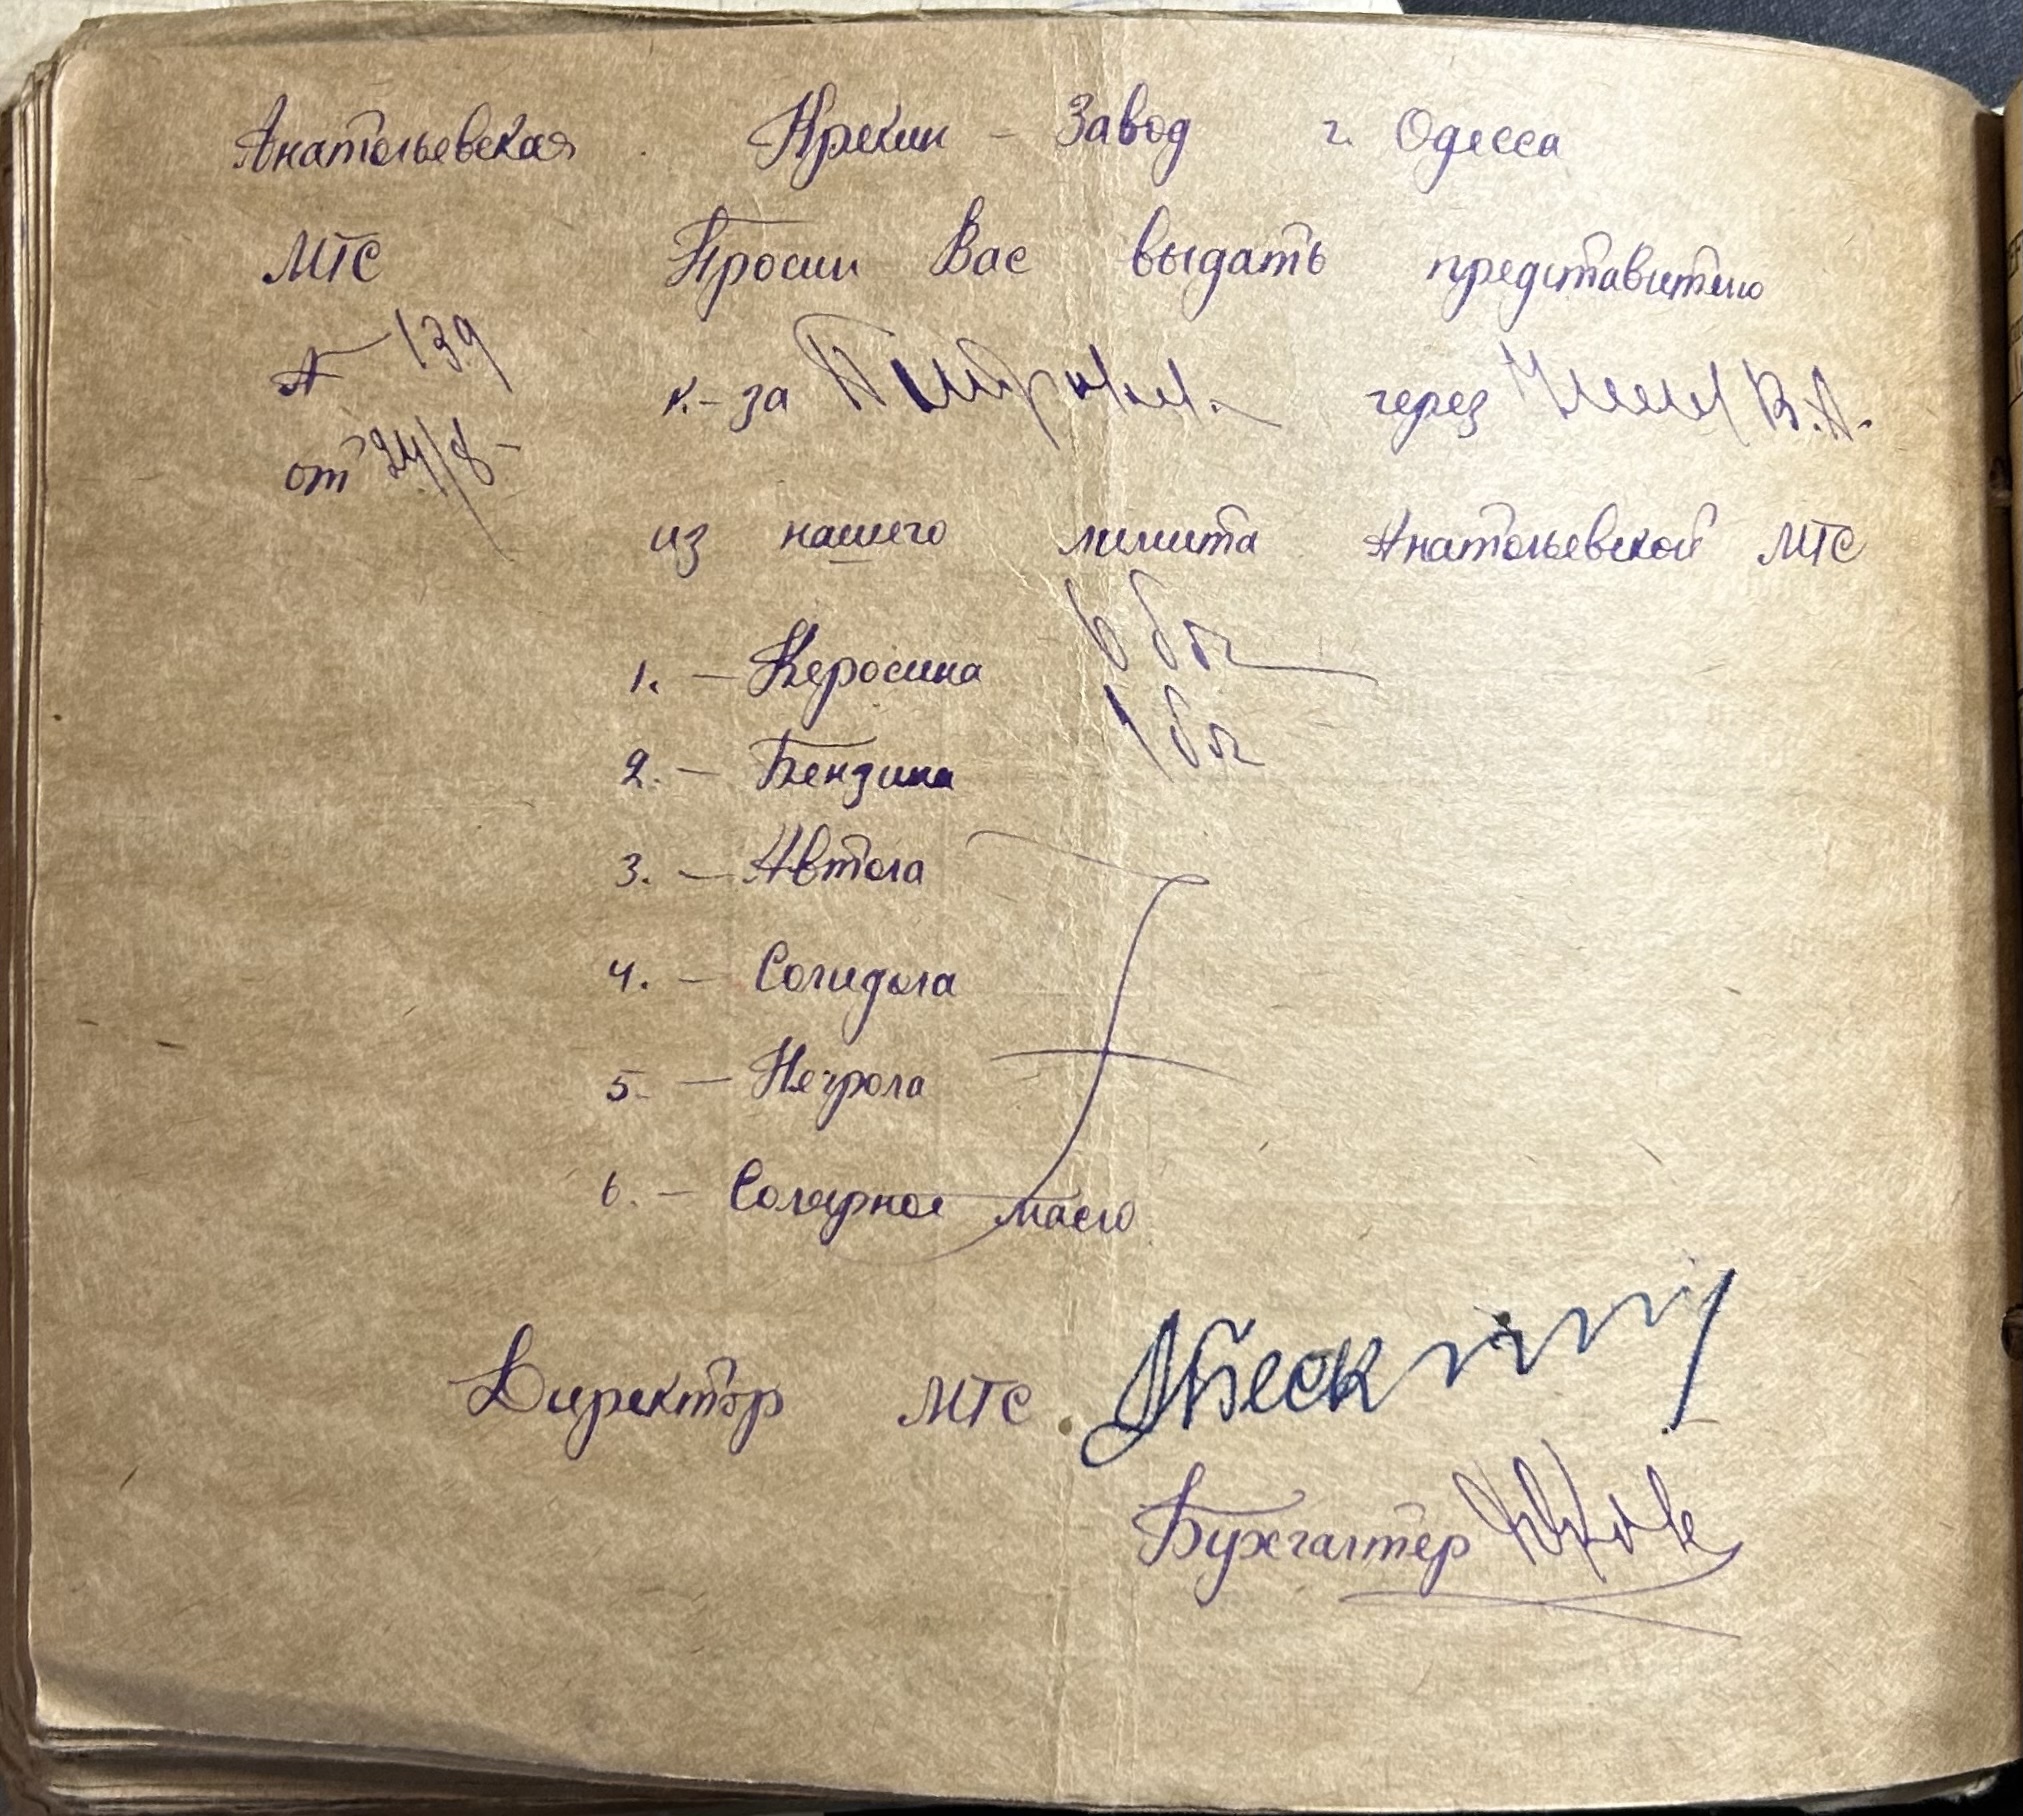 Анатольевская Крекин - Завод г. Одесса
МТС Просим Вас выдать представителю
№ 139 к.-за через В.А.
от 24/8-
из нашего лимита Анатольевской МТС
1. - Керосина 6 боч
2. - Бензина 1 боч
3. - Автола
4. - Солидола
5. - Негрола
6. - Солярное масло
Директор МТС
Бухгалтер